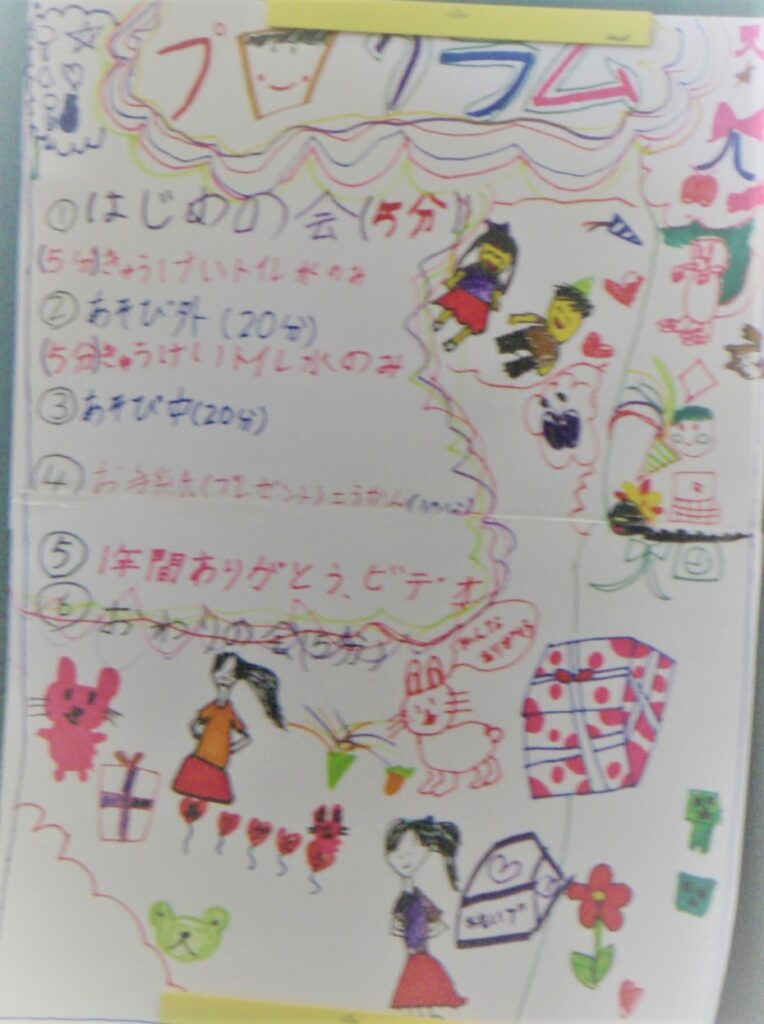 プログラム
①はじめの会(5分)
(5分)きゅうけいトイレ水のみ
②あそび外(20分)
(5分)きゅうけいトイレ水のみ
③あそび中(20分)
④お手紙(プレゼント)こうかん
⑤1年間ありがとう、ビデオ
⑥おわりの会(5分)
みんな
ありがとう